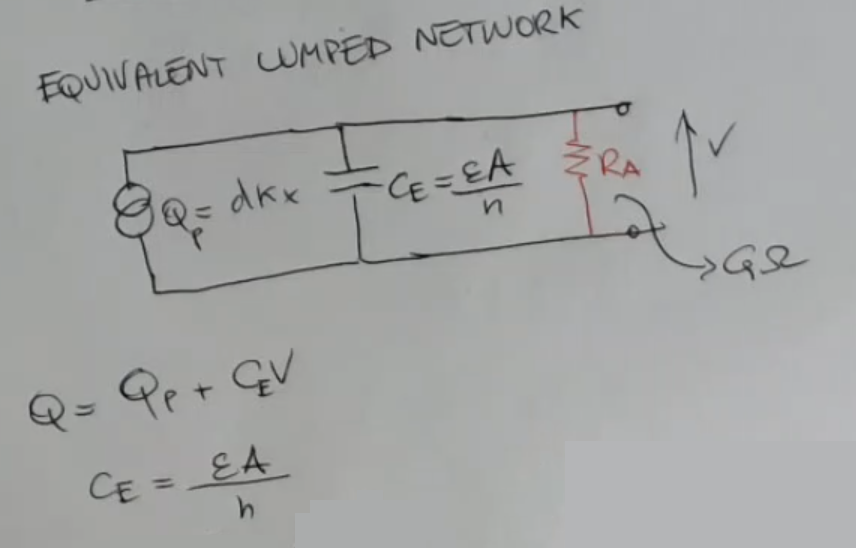 EQUIVALENT LUMPED NETWORK
Qp = dKx
CE = εA/n
RA
V
GΩ
Q = Qp + CEV
CE = εA/h